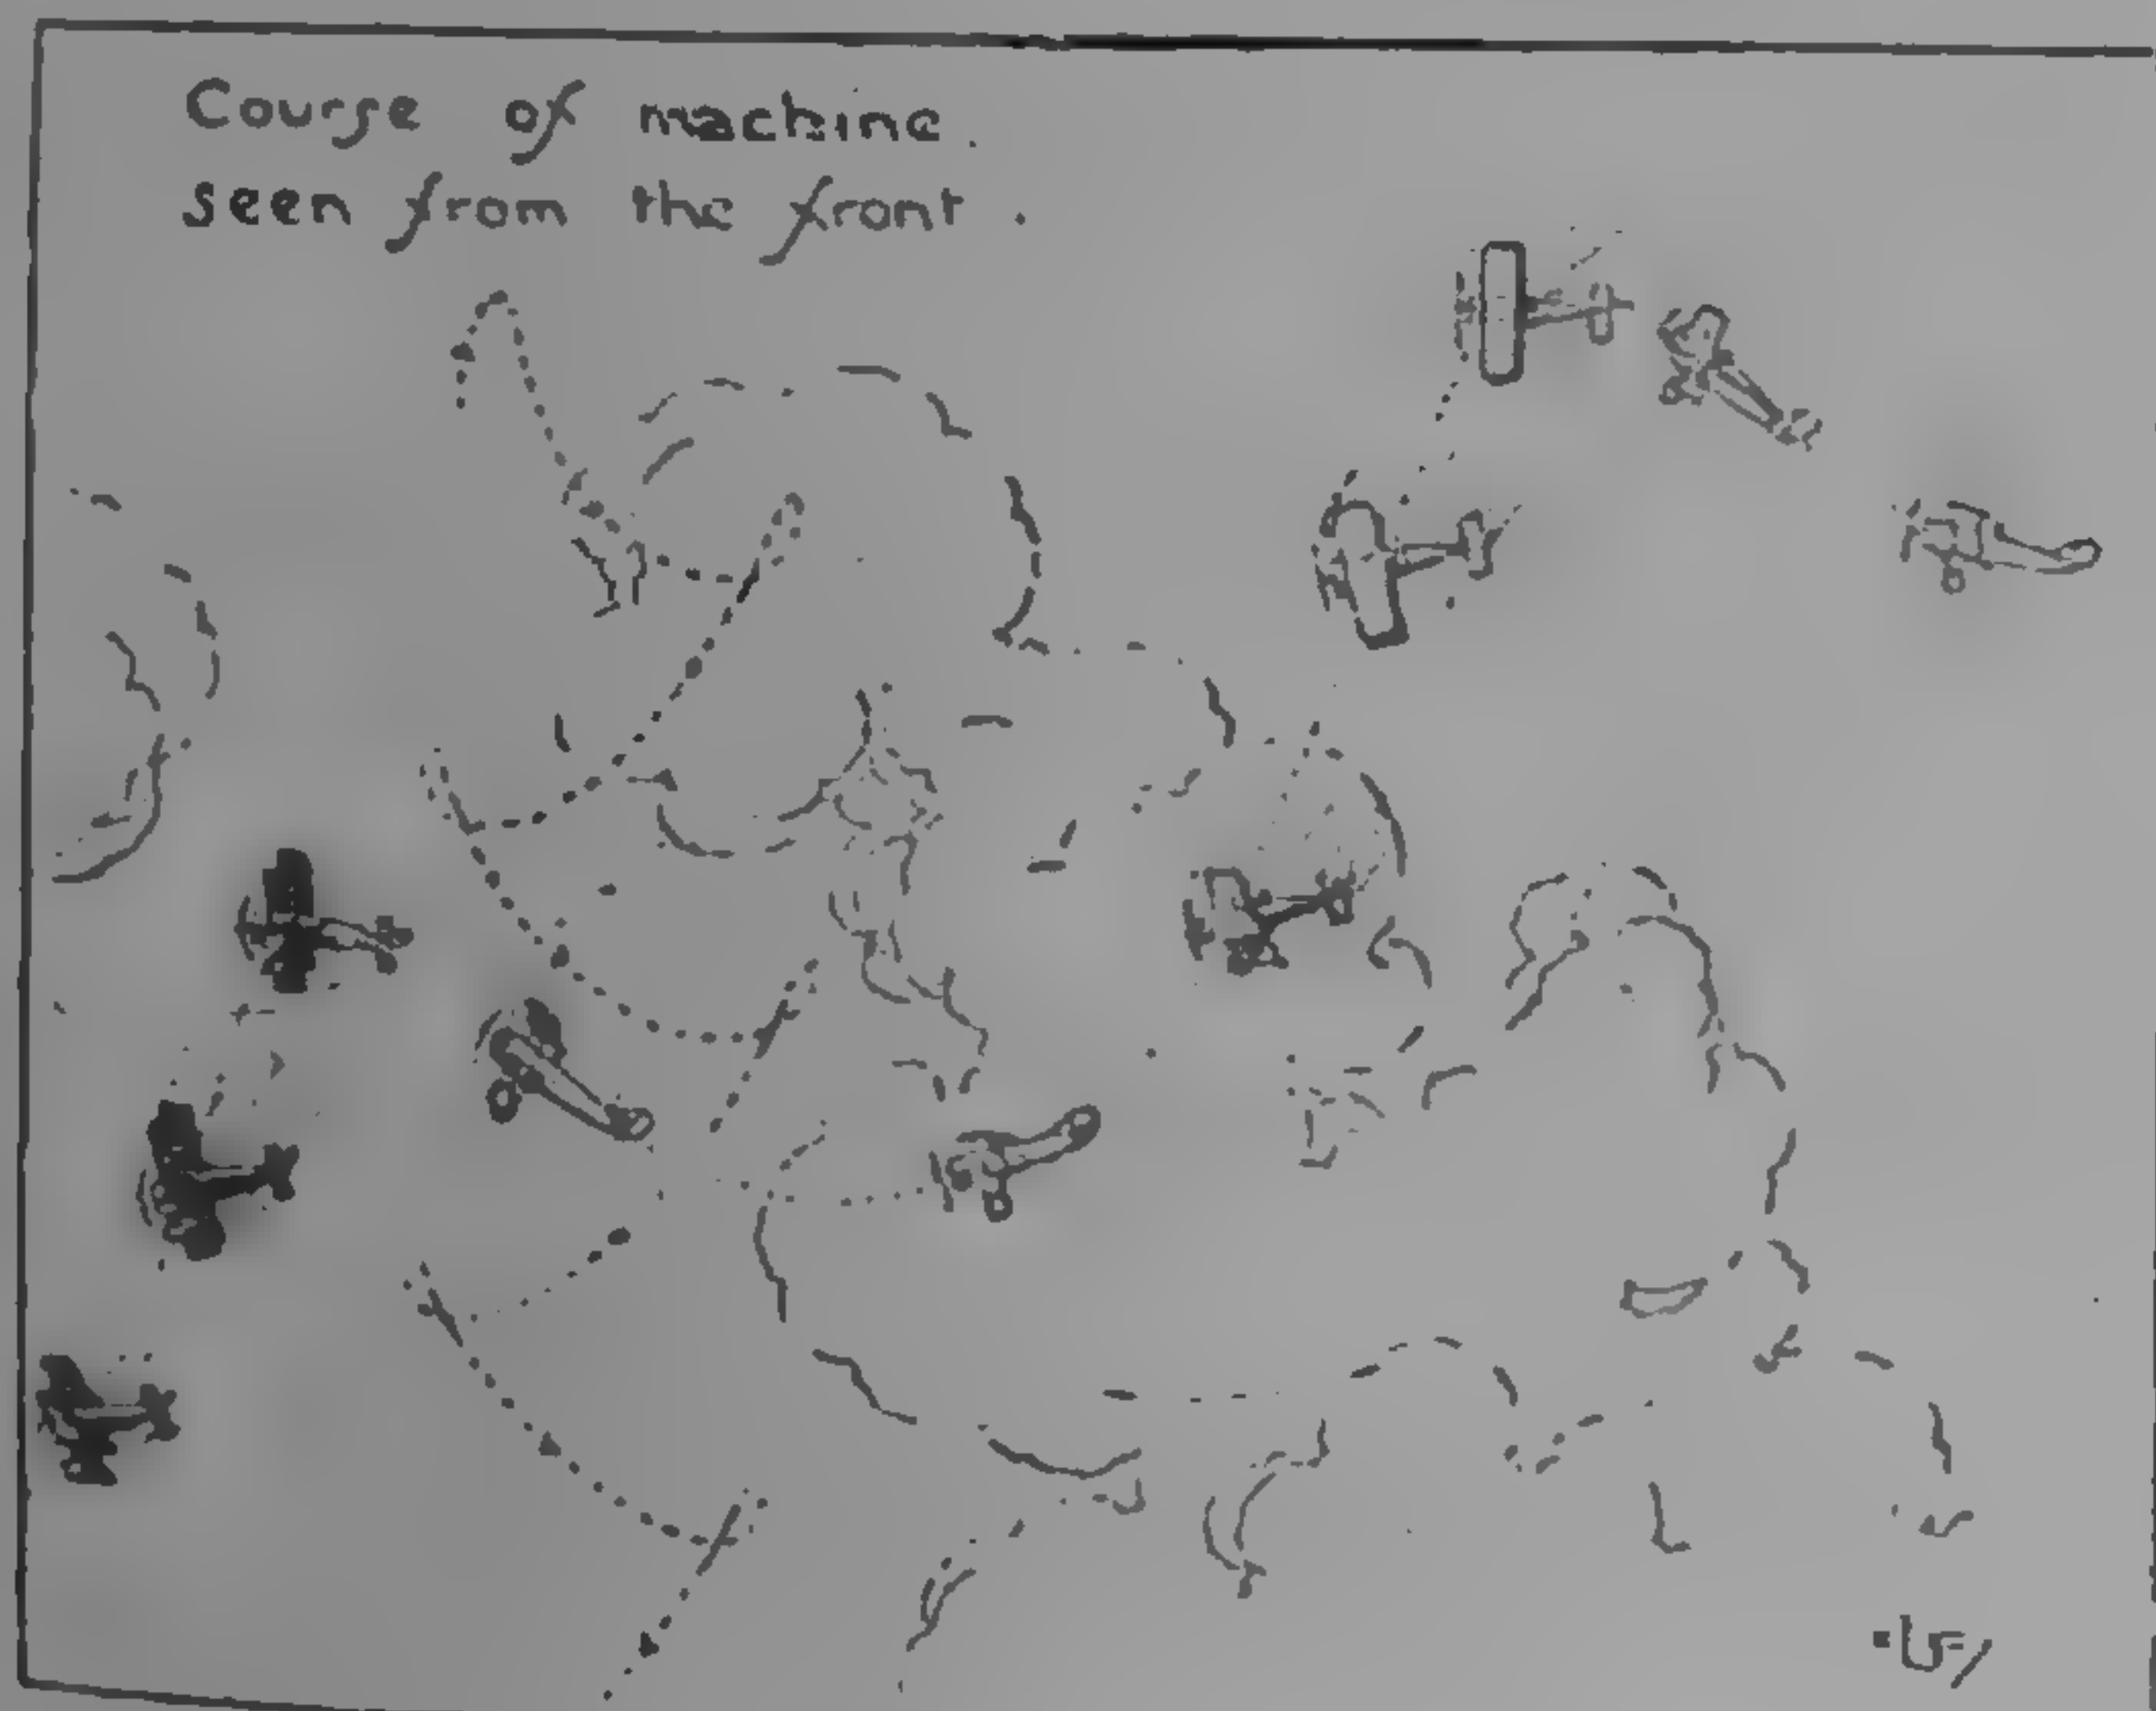 Course of machine.
seen from the front.